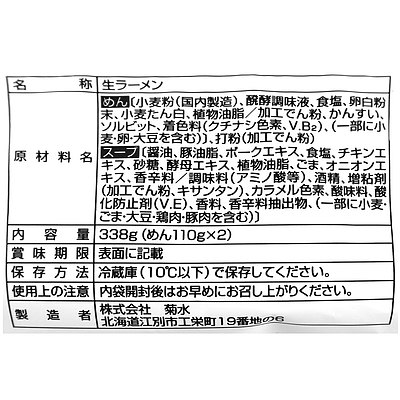 名称 生ラーメン
めん〔小麦粉(国内製造)、醗酵調味液、食塩、卵白粉
末、小麦たん白、植物油脂／加工でん粉、かんすい、
ソルビット、着色料(クチナシ色素、V.B₂)、(一部に小
麦・卵・大豆を含む)〕、打粉(加工でん粉)
原材料名 スープ〔醤油、豚油脂、ポークエキス、食塩、チキンエ
キス、砂糖、酵母エキス、植物油脂、ごま、オニオンエ
キス、香辛料／調味料(アミノ酸等)、酒精、増粘剤
(加工でん粉、キサンタン)、カラメル色素、酸味料、酸
化防止剤(V.E)、香料、香辛料抽出物、(一部に小麦・
ごま・大豆・鶏肉・豚肉を含む)〕
内容量 338g(めん110g×2)
賞味期限 表面に記載
保存方法 冷蔵庫(10℃以下)で保存してください。
使用上の注意 内袋開封後はお早めにお召し上がりください。
製造者 株式会社 菊水
北海道江別市工栄町19番地の6